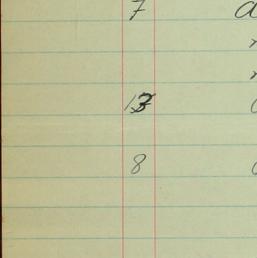 7
13
8